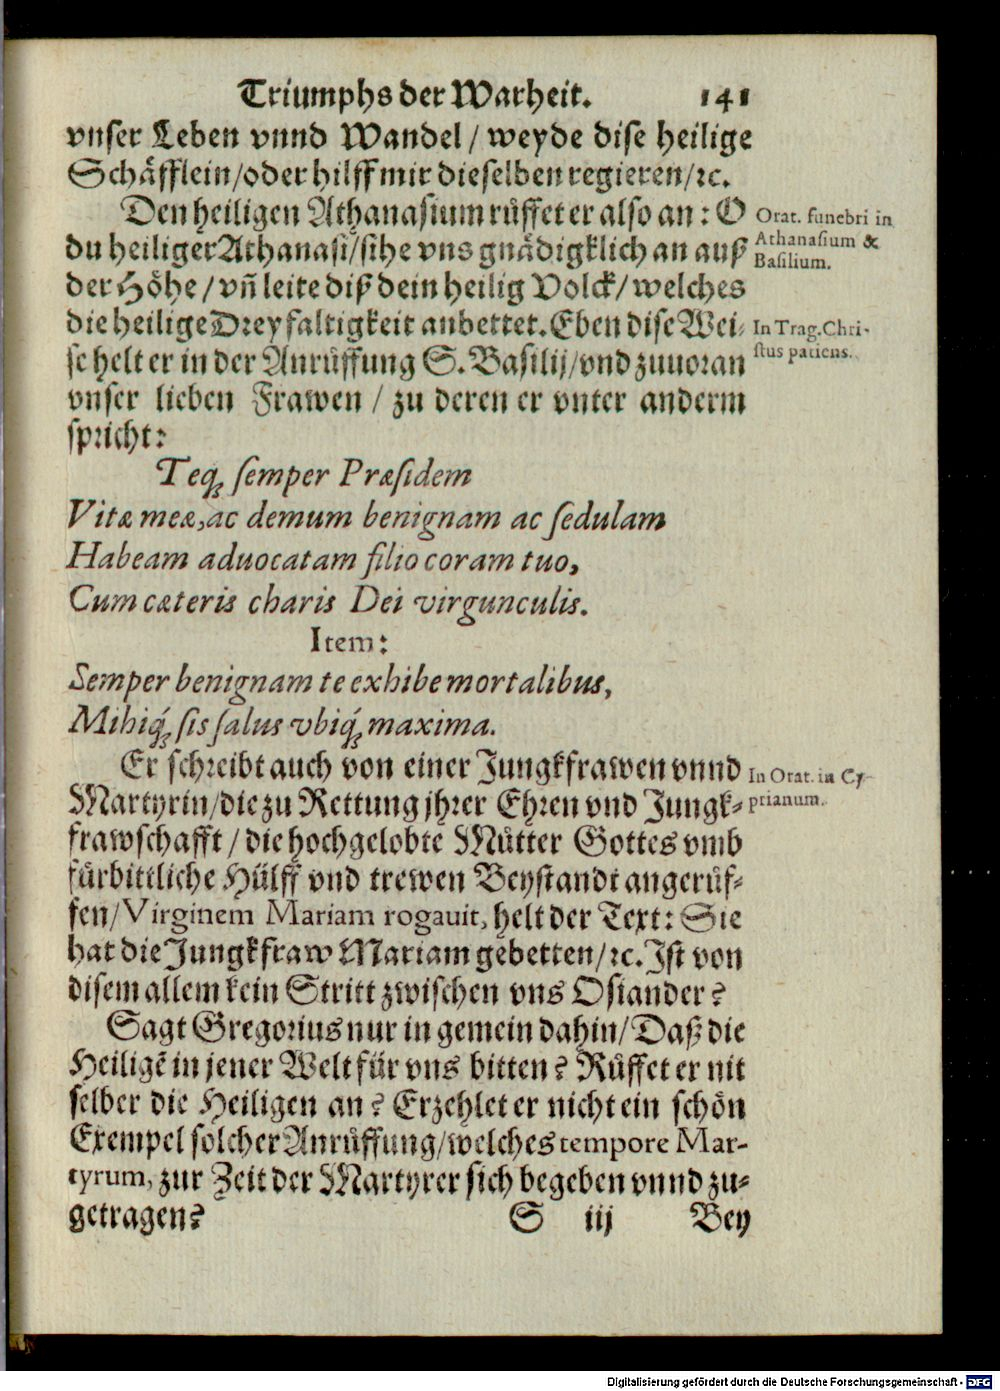 Triumphs der Warheit. 141
vnser Leben vnnd Wandel / weyde dise heilige
Schäfflein/oder hilff mir dieselben regieren/ꝛc.
Den heiligen Athanasium růffet er also an: O
du heiliger Athanasi/sihe vns gnädigklich an auß
der Höhe / vñ leite diß dein heilig Volck/ welches
die heilige Dreyfaltigkeit anbettet. Eben dise Wei-
se helt er in der Anrůffung S. Basilij/vnd zuuoran
vnser lieben Frawen / zu deren er vnter anderm
spricht:
Orat. funebri in
Athanasium &
Basilium.
In Trag. Chri-
stus patiens.
Teq́; semper Præsidem
Vitæ meæ, ac demum benignam ac sedulam
Habeam aduocatam filio coram tuo,
Cum cæteris charis Dei virgunculis.
Item:
Semper benignam te exhibe mortalibus,
Mihiq́; sis salus vbiq́; maxima.
Er schreibt auch von einer Jungkfrawen vnnd
Martyrin/die zu Rettung jhrer Ehren vnd Jungk-
frawschafft / die hochgelobte Můtter Gottes vmb
fürbittliche Hülff vnd trewen Beystandt angerůf-
fen/Virginem Mariam rogauit, helt der Text: Sie
hat die Jungkfraw Mariam gebetten/ꝛc. Ist von
disem allem kein Stritt zwischen vns Osiander?
In Orat. in Cy-
prianum.
Sagt Gregorius nur in gemein dahin/Daß die
Heiligẽ in jener Welt für vns bitten? Růffet er nit
selber die Heiligen an? Erzehlet er nicht ein schön
Exempel solcher Anrůffung/welches tempore Mar-
tyrum, zur Zeit der Martyrer sich begeben vnnd zu-
getragen?
S iij Bey
Digitalisierung gefördert durch die Deutsche Forschungsgemeinschaft - DFG